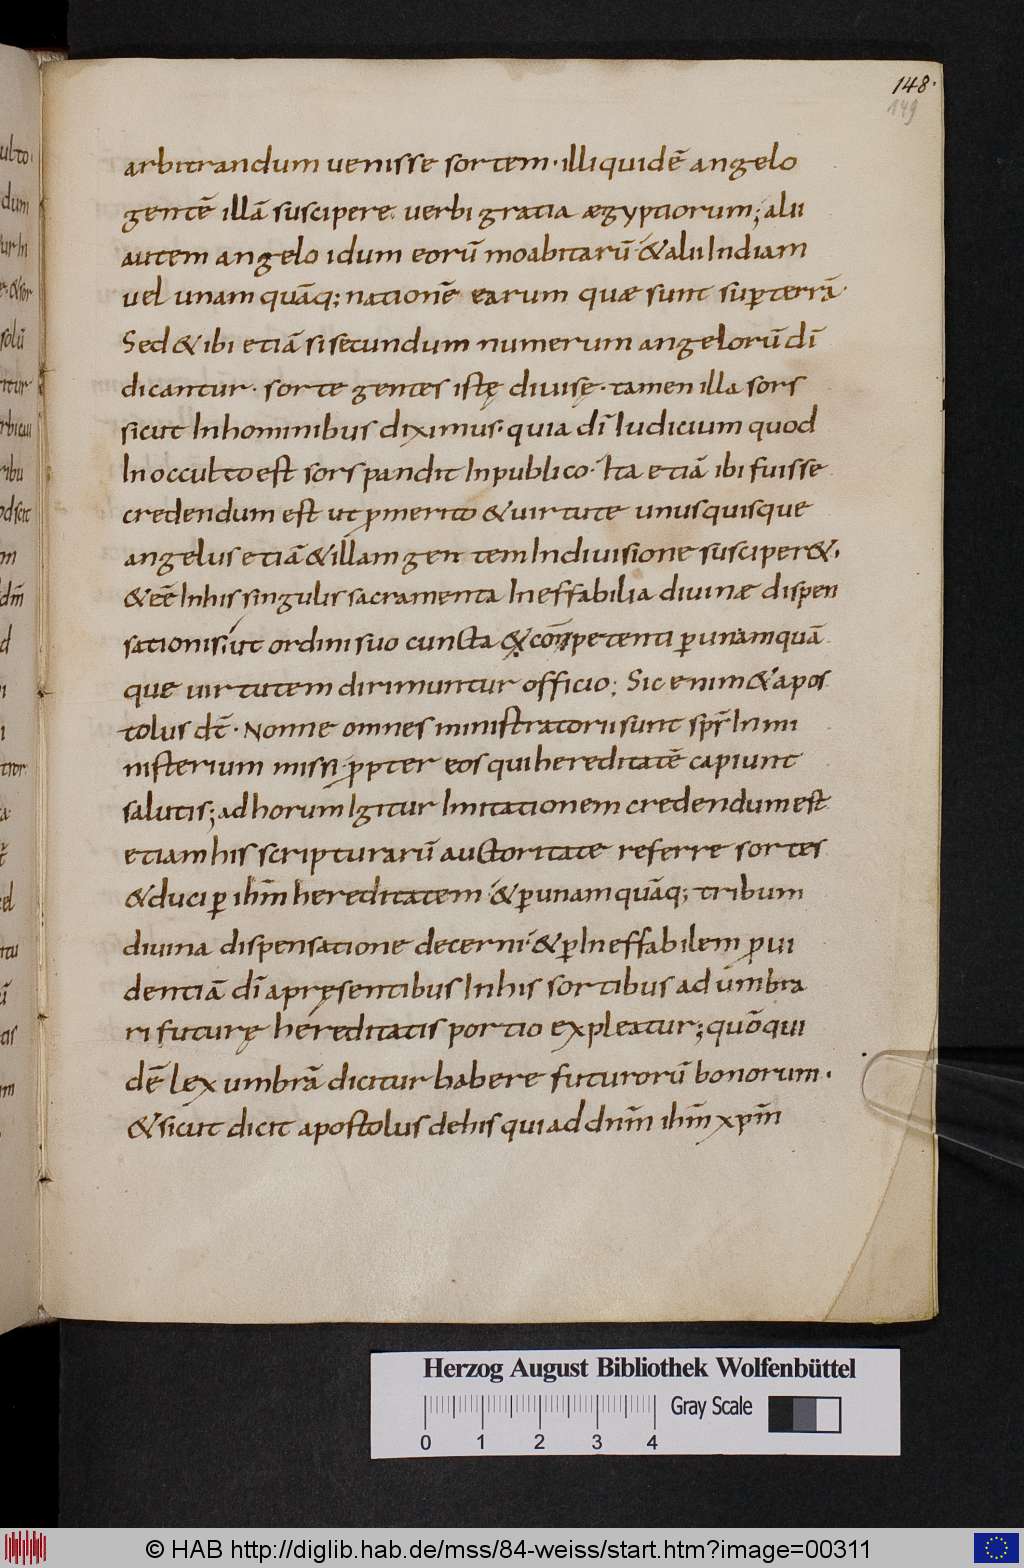 148.
149
arbitrandum venisse sortem· illi quidē angelo
gentē illā suscipere verbi gratia ægyptiorum; alii
autem angelo idum eorū moabitarū & alii Indiam
vel unam quāq; nationē earum quæ sunt sup terrā·
Sed & ibi etiā si secundum numerum angelorū dī
dicantur· sorte gentes istę divisę· tamen illa sors
sicut In hominibus diximus· quia dī Iudicium quod
In occulto est sors pandit In publico· Ita etiā ibi fuisse
credendum est ut p merito & virtute unusquisque
angelus etiā & illam gentem In divisione susciper&·
& eē In his singulis sacramenta Ineffabilia divinæ dispen
sationis· ut ordini suo cuncta & conpetenti p unamquā
que virtutem dirimuntur officio; Sic enim & apos
tolus dt̄· Nonne omnes ministratorii sunt sps̄ In mi
nisterium missi ppter eos qui hereditatē capiunt
salutis; ad horum Igitur Imitationem credendum est
etiam his scripturarū auctoritate referre sortes
& duci p ihm̄ hereditatem & p unam quāq; tribum
divina dispensatione decerni· & p Ineffabilem pvi
dentiā dī a pręsentibus In his sortibus adumbra
ri futurę hereditatis portio expleatur; quō qui
dē lex umbrā dicitur habere futurorū bonorum·
& sicut dicit apostolus de his qui ad dnm̄ ihm̄ xpm̄
Herzog August Bibliothek Wolfenbüttel
Gray Scale
0 1 2 3 4
© HAB http://diglib.hab.de/mss/84-weiss/start.htm?image=00311